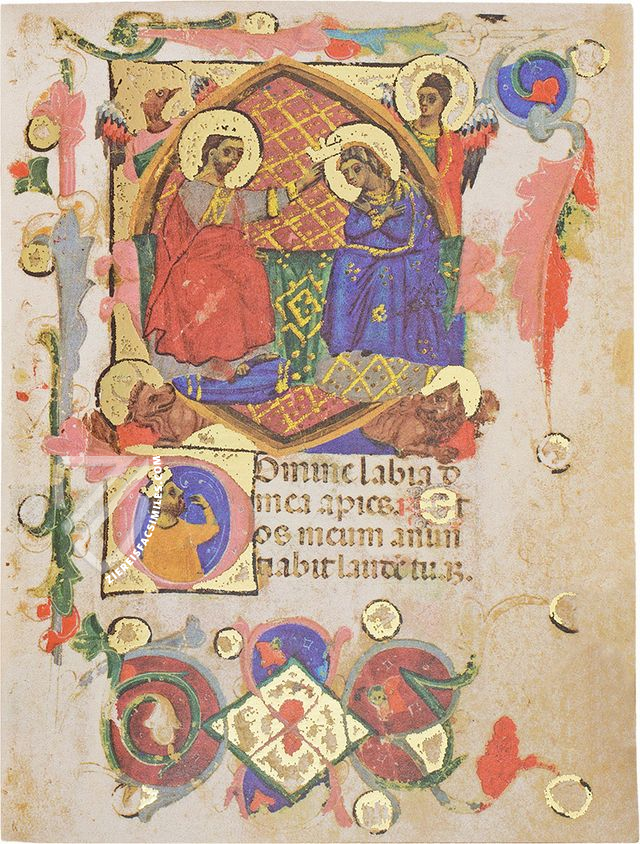 DOmine labia
mea apies. Et
os meum anun
tiabit laudē tuaꝫ.
ZIEREISFACSIMILES.COM